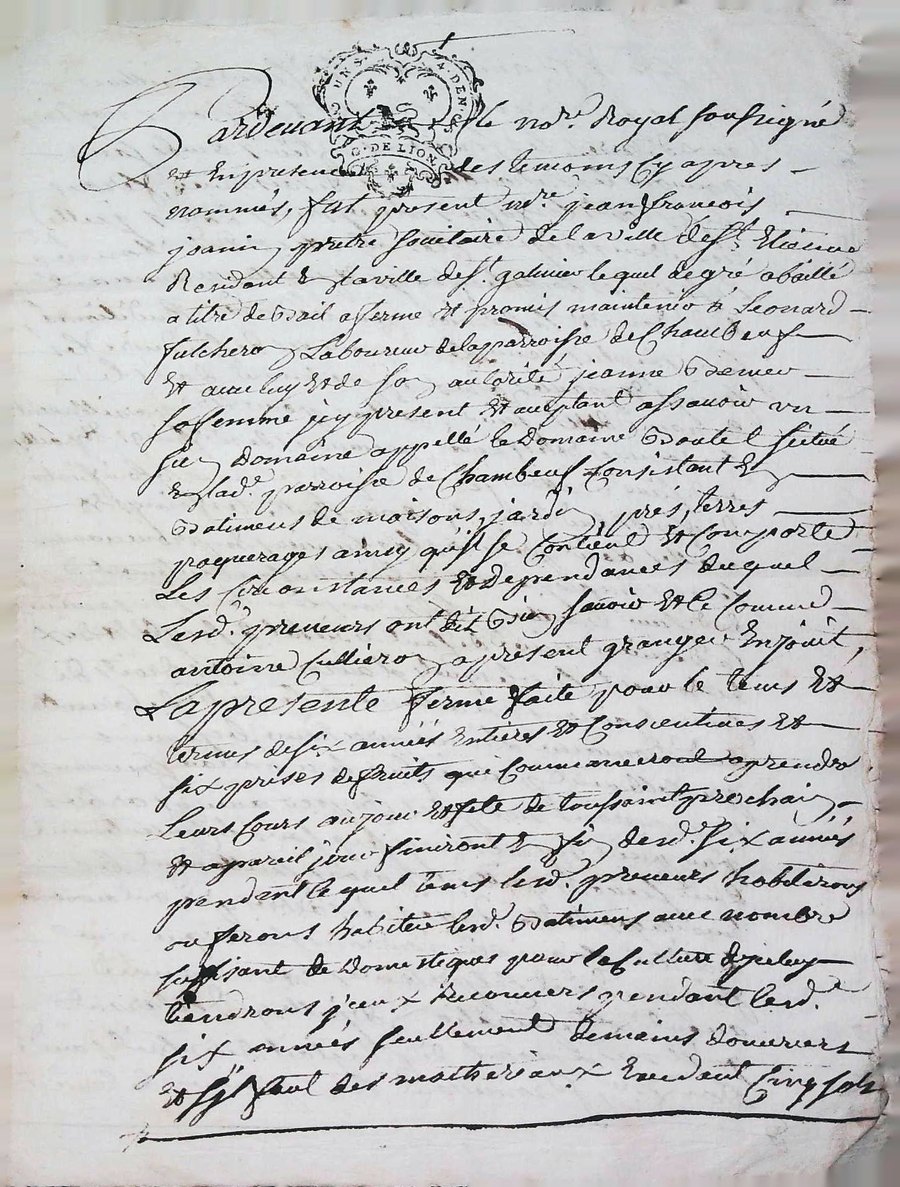 UN S. 4. DEN.
G. DE LION
Pardevant le no.re Royal soussigné
et en presence des temoins cy apres
nommés, fut present m.re jean françois
janin pretre societaire de la ville de S.t Etienne
Rendant en la ville de S.t galmier lequel de gré a baillé
a titre de bail a ferme et promis maintenir à Leonard
fulchero Laboureur de la parroisse de Chambeuf
et avec luy et de son autorité jeanne
sa femme icy present et acceptant assavoir un
sien domaine appellé le domaine situé
en lad.e parroisse de Chambeuf Consistant en
batimens de maisons, jardin, prés, terres
paquerages ainsy qu'il se Contient et Comporte
Les Circonstances et dependances duquel
Lesd. preneurs ont dit bien savoir et le comme
antoine Culliero apresent granger En jouit,
La presente ferme faite pour le tems et
termes de six années Entieres et Consecutives et
six prises de fruits qui Commanceront a prendre
Leurs Cours au jour et fete de toussaint prochain
et a pareil jour finiront en fin desd. six années
pendent lequel tems lesd. preneurs habiterons
ou ferons habiter lesd. batimens avec nombre
suffisant de domestiques pour la Culture d'jceluy
tiendrons jceux pendant lesd.
six années seullement de mains d'ouvriers
et sy faut des matheriaux Cinq sols